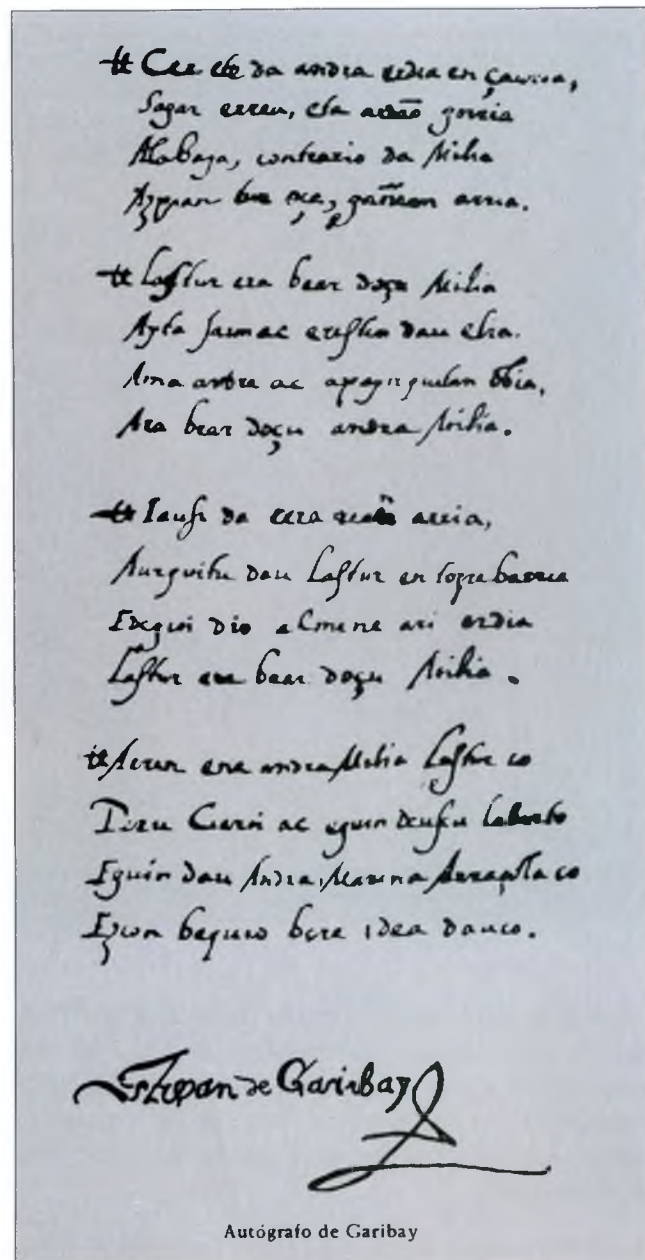 Cer ete da andra erdia en çauria,
Sagar errea, eta ardão gorria
Alabaya, contrario da Milia
Azpian lur oça, gañean arria.
Lastur era bear doçu Milia
Ayta Jaunac eresten dau elia.
Ama andre ac apaynquetan obia,
Ara bear doçu andra Milia.
Iausi da cerurean arria,
Aurquitu dau Lastur en torre barria
Edegui dio almene ari erdia
Lastur era bear doçu Milia.
Arren ene andra Milia Lastur co
Peru Garci ac eguin deusku laburto
Eguin dau Andra Marina Arraçola co
Ezcon bequio bere idea dauco.
Estevan de Garibay
Autógrafo de Garibay